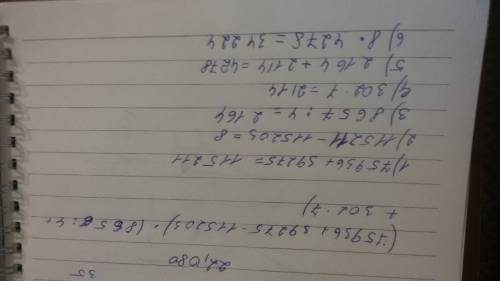 35
22,080
(75936+39275-115203)·(8656:4+
+302·7)
1) 75936+39275=115211
2) 115211-115203=8
3) 8657:4=2164
4) 302·7=2114
5) 2164+2114=4278
6) 8·4278=34224